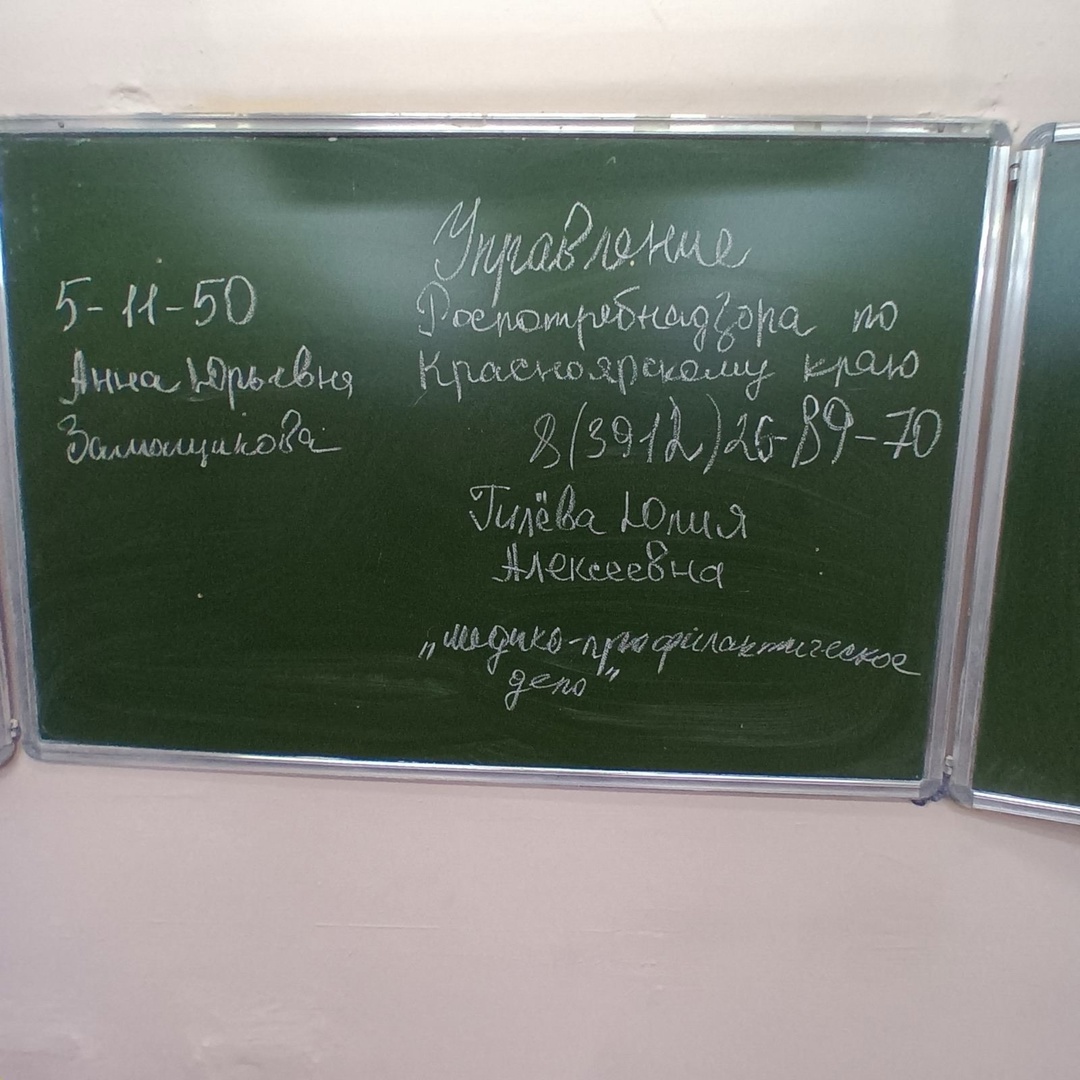 5-11-50
Анна Юрьевна
Замощикова
Управление
Роспотребнадзора по
Красноярскому краю
8(3912)26-89-70
Гилёва Юлия
Алексеевна
„медико-профилактическое
дело"